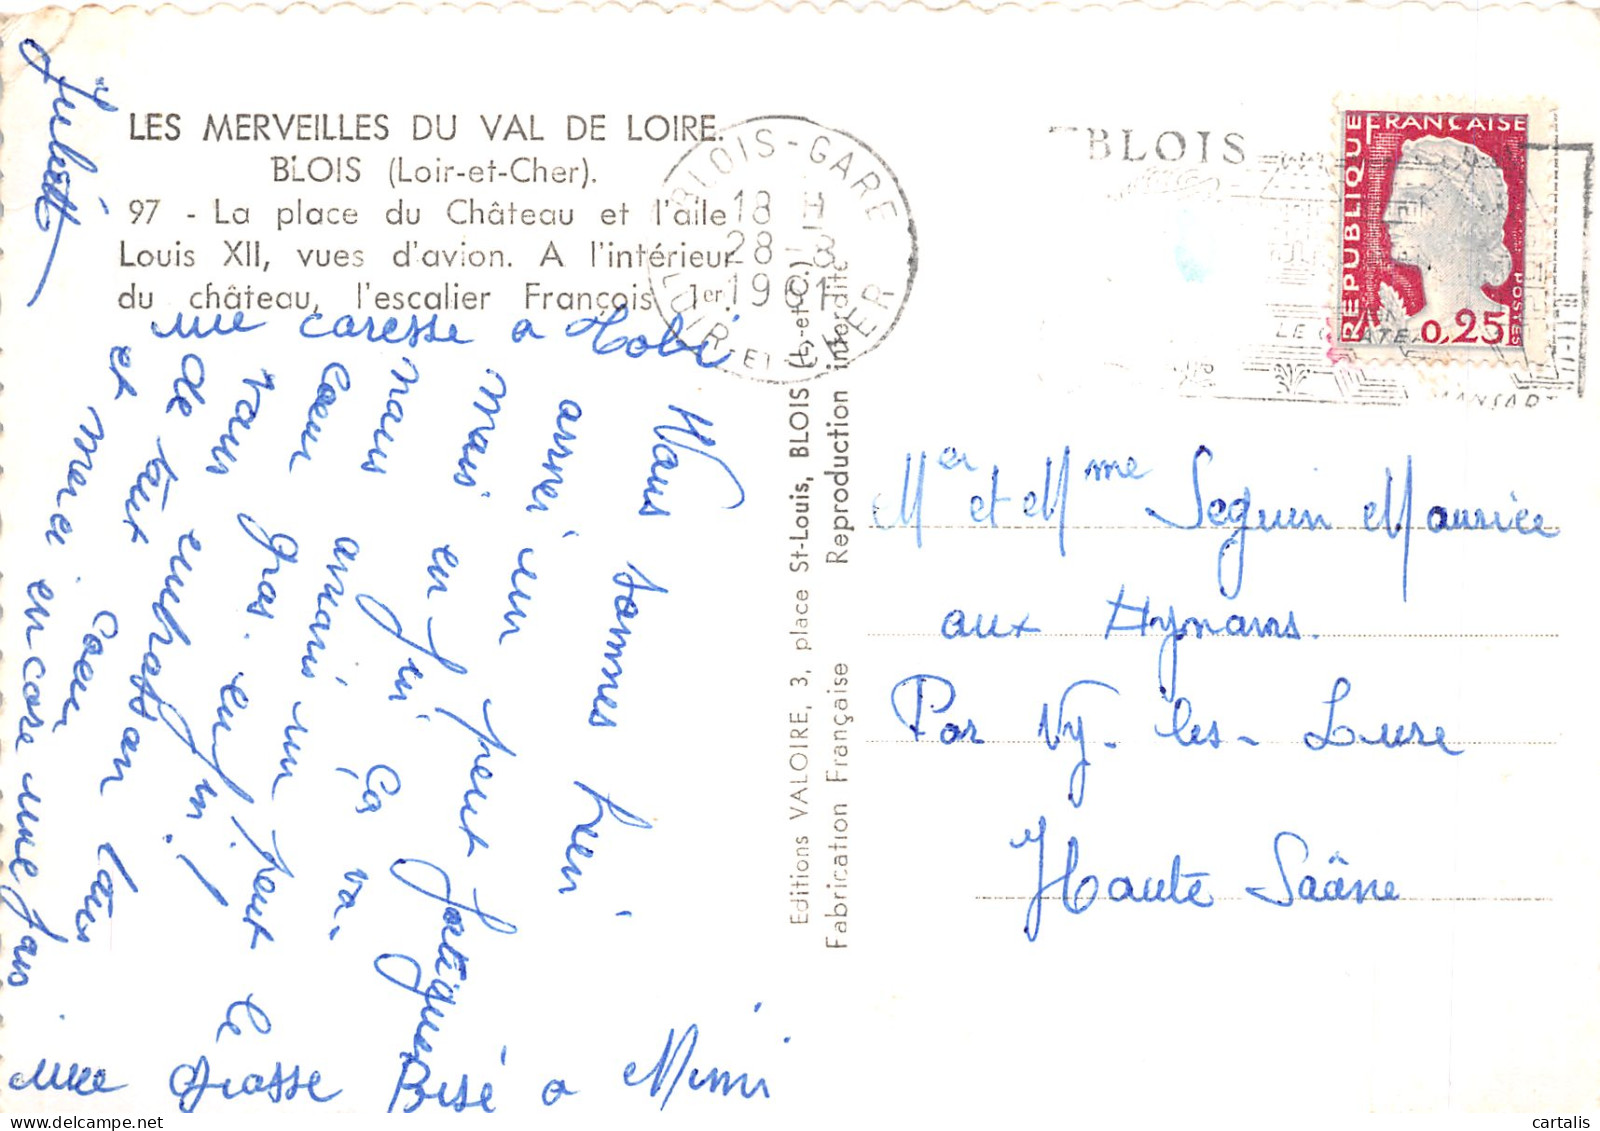 LES MERVEILLES DU VAL DE LOIRE.
BLOIS (Loir-et-Cher).
97 - La place du Château et l'aile
Louis XII, vues d'avion. A l'intérieur
du château, l'escalier François 1er.
BLOIS-GARE
18 H
28-8
1961
LOIR-ET-CHER
BLOIS
REPUBLIQUE FRANÇAISE
POSTES
0,25
MANSART
Editions VALOIRE, 3, place St-Louis, BLOIS (L.-et-C.)
Fabrication Française
Reproduction interdite
Mer et Mme Seguin Maurice
aux Aynans.
Par Vy-les-Lure
Haute Saône
Nous sommes bien
arrivé un peut fatiguer
mais enfin ça va.
nous avons un peut le
cœur gros. enfin!
nous embrasson tous
de tout cœur
et merci encore une fois.
une caresse a Hobi
une grosse Bisé a Mimi
Juliette
cartalis